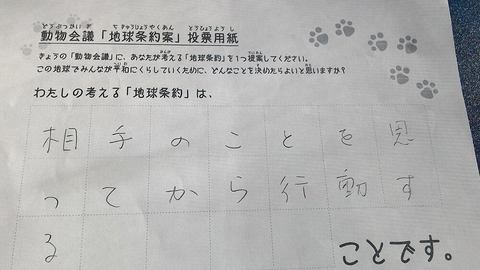 動物会議「地球条約案」投票用紙
きょうの「動物会議」に、あなたが考える「地球条約」を1つ提案してください。
この地球でみんなが平和にくらしていくために、どんなことを決めたらよいと思いますか?
わたしの考える「地球条約」は、
相手のことを思
ってから行動す
る
ことです。